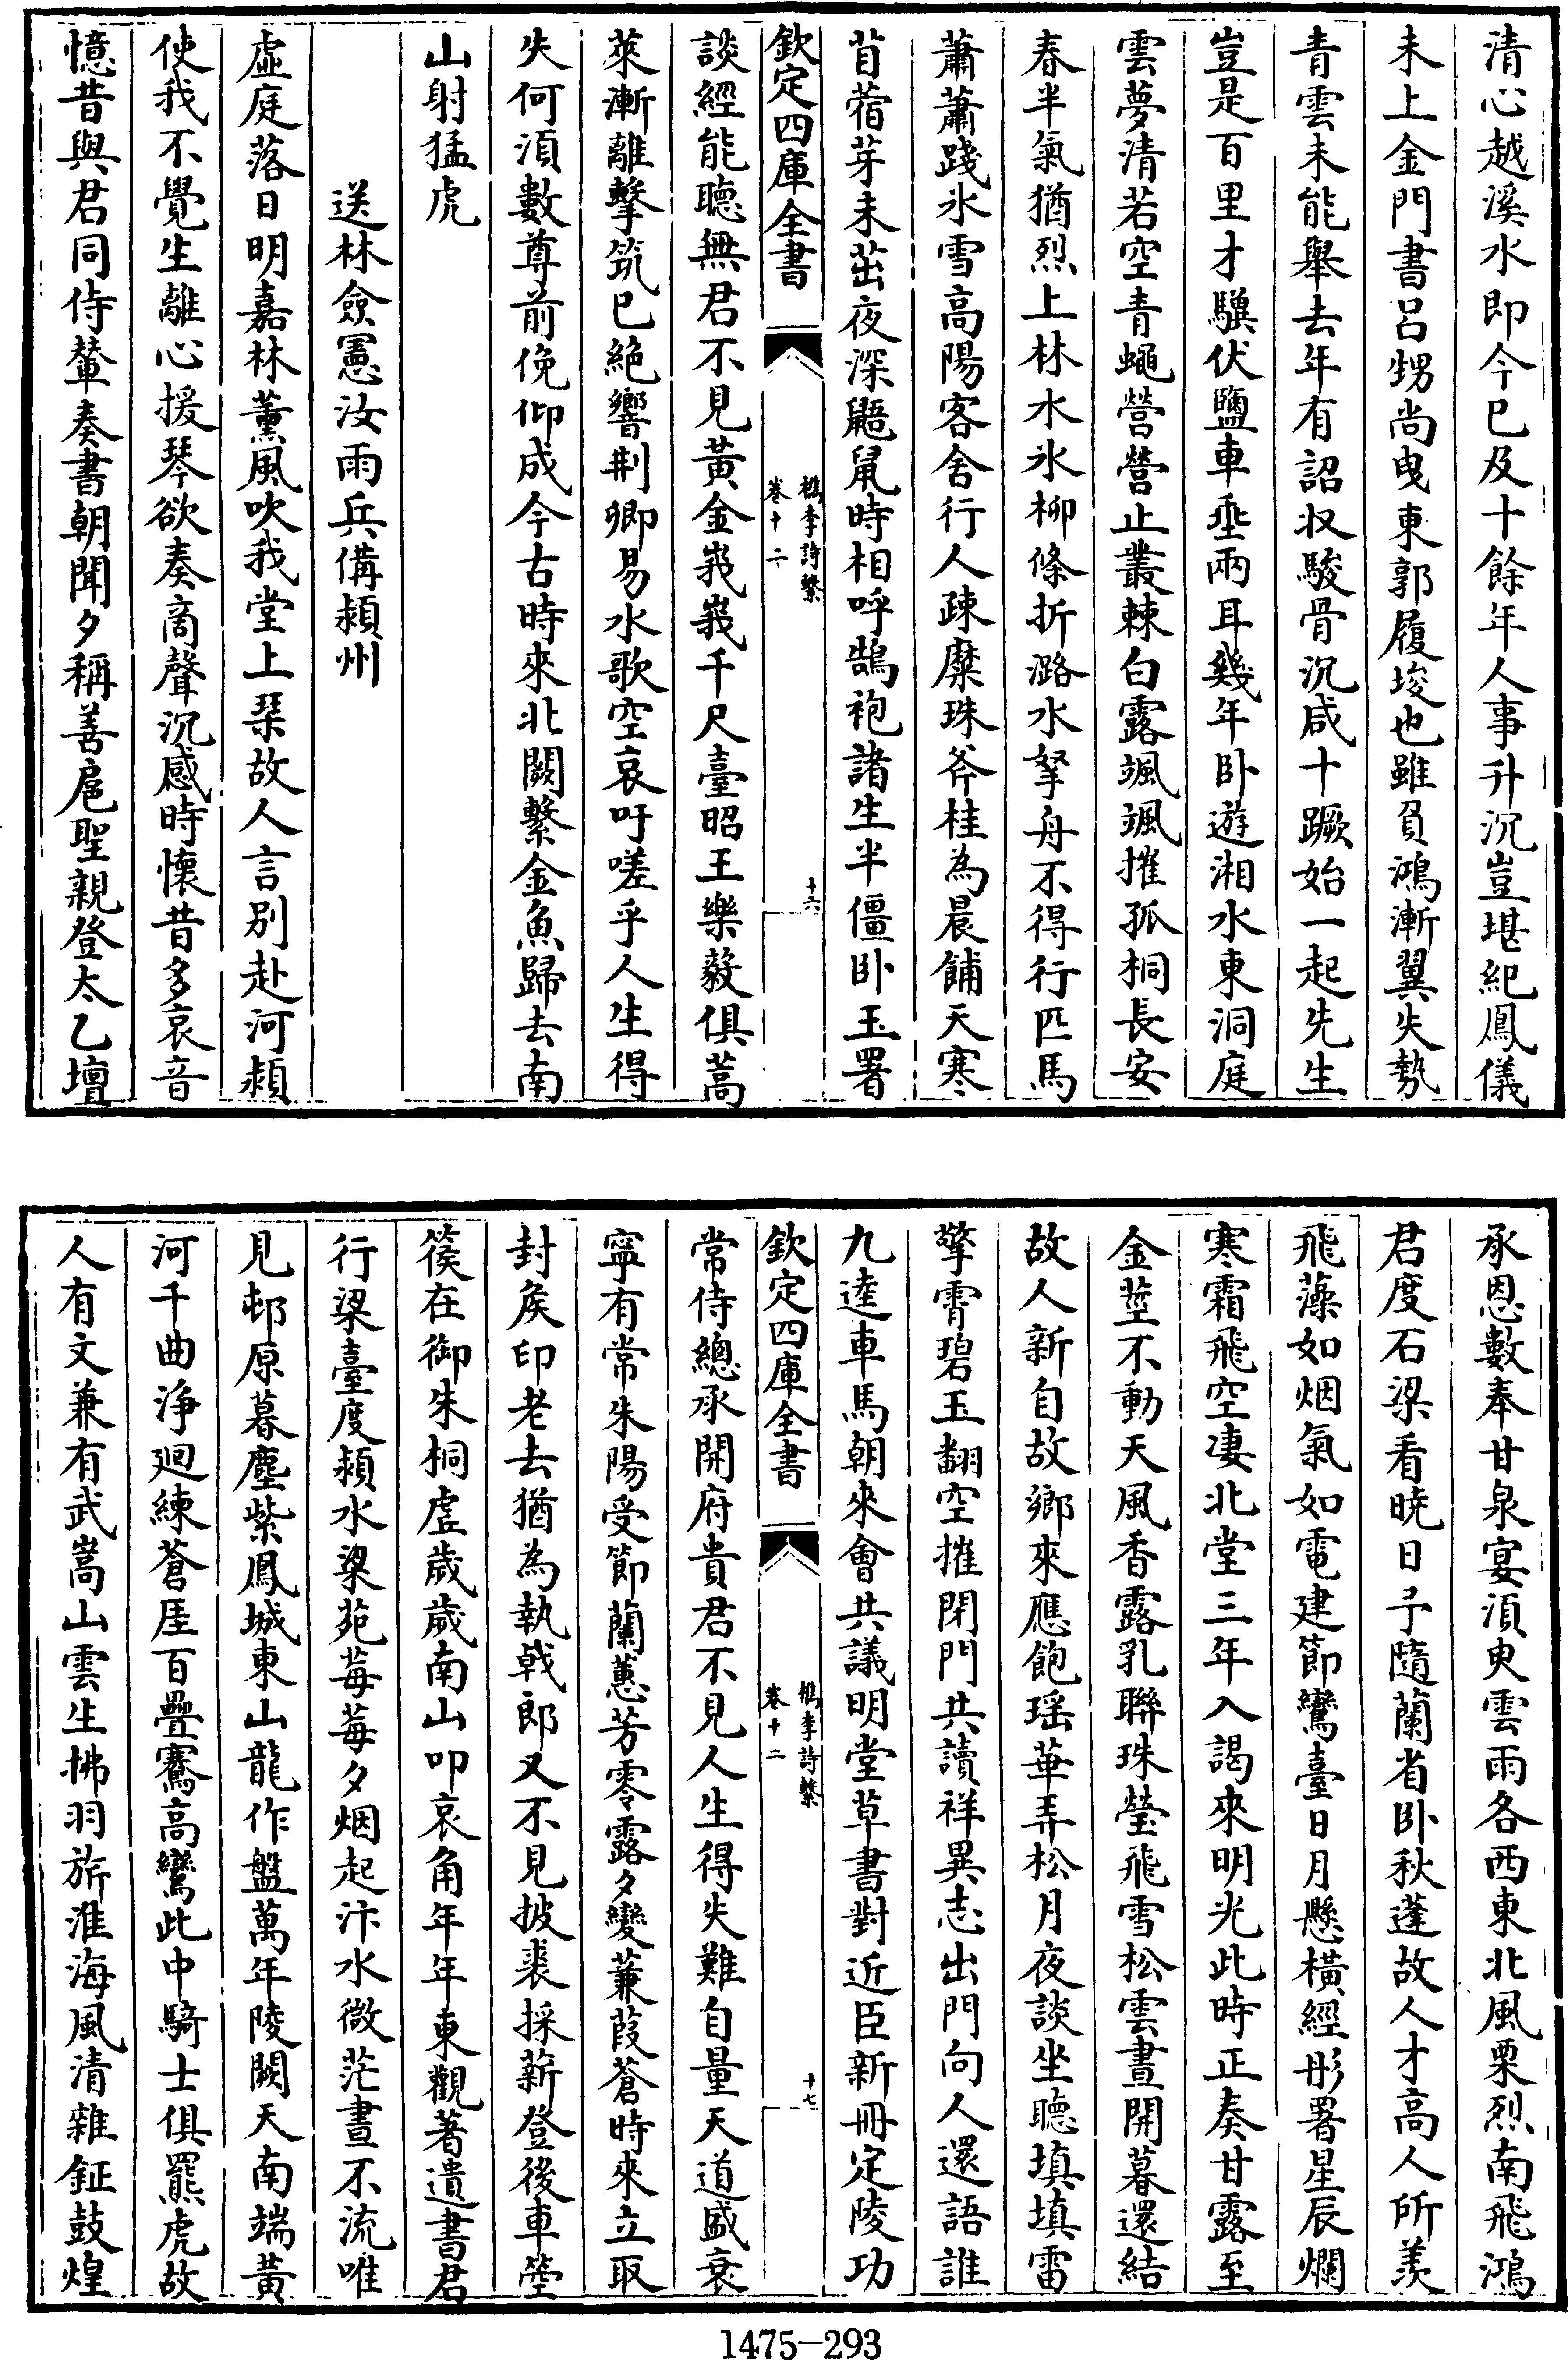 清心越溪水即今已及十餘年人事升沉豈堪紀鳳儀
未上金門書呂甥尚曳東郭履埈也雖負鴻漸翼失勢
青雲未能舉去年有詔収駿骨沉咸十蹶始一起先生
豈是百里才驥伏鹽車垂兩耳幾年卧遊湘水東洞庭
雲夢清若空青蠅營營止叢棘白露颯颯摧孤桐長安
春半氣猶烈上林水氷柳條折潞水拏舟不得行匹馬
蕭蕭踐氷雪高陽客舍行人疎糜珠斧桂為晨餔天寒
苜蓿芽未茁夜深鼯鼠時相呼鵠袍諸生半僵卧玉署
欽定四庫全書
檇李詩繫
卷十二
十六
談經能聽無君不見黃金峩峩千尺臺昭王樂毅俱蒿
萊漸離擊筑已絶響荆卿易水歌空哀吁嗟乎人生得
失何須數尊前俛仰成今古時來北闕繫金魚歸去南
山射猛虎
送林僉憲汝雨兵備潁州
虛庭落日明嘉林薰風吹我堂上琹故人言別赴河潁
使我不覺生離心援琴欲奏商聲沉感時懷昔多哀音
憶昔與君同侍輦奏書朝聞夕稱善扈聖親登太乙壇
承恩數奉甘泉宴須臾雲雨各西東北風栗烈南飛鴻
君度石梁看曉日予隨蘭省卧秋蓬故人才高人所羨
飛藻如烟氣如電建節鸞臺日月懸橫經彤署星辰爛
寒霜飛空凄北堂三年入謁來明光此時正奏甘露至
金莖不動天風香露乳聯珠瑩飛雪松雲晝開暮還結
故人新自故鄉來應飽瑶華弄松月夜談坐聽填填雷
擎霄碧玉翻空摧閉門共讀祥異志出門向人還語誰
九逵車馬朝來會共議明堂草書對近臣新冊定陵功
欽定四庫全書
檇李詩繫
卷十二
十七
常侍總承開府貴君不見人生得失難自量天道盛衰
寧有常朱陽受節蘭蕙芳零露夕變蒹葭蒼時來立取
封矦印老去猶為執戟郎又不見披裘採薪登後車箜
篌在御朱桐虛歲歲南山叩哀角年年東觀著遺書君
行梁臺度潁水梁苑莓莓夕烟起汴水微茫晝不流唯
見邨原暮塵紫鳳城東山龍作盤萬年陵闕天南端黃
河千曲淨迴練蒼厓百疊騫高鸞此中騎士俱羆虎故
人有文兼有武嵩山雲生拂羽旂淮海風清雜鉦鼓煌
1475-293